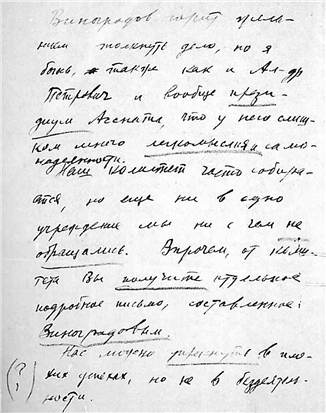 Виноградов горит жела-
нием толкнуть дело, но я
боюсь, также как и Ал-др
Петрович и вообще прези-
диум Аснита, что у него слиш-
ком много легкомыслия и само-
надеянности.
Наш комитет часто собира-
ется, но еще ни в одно
учреждение мы ни с чем не
обращались. Впрочем, от коми-
тета Вы получите отдельное
подробное письмо, составленное
Виноградовым.
Нас можно упрекнуть в пло-
хих успехах, но не в бездеятель-
ности.
(?)